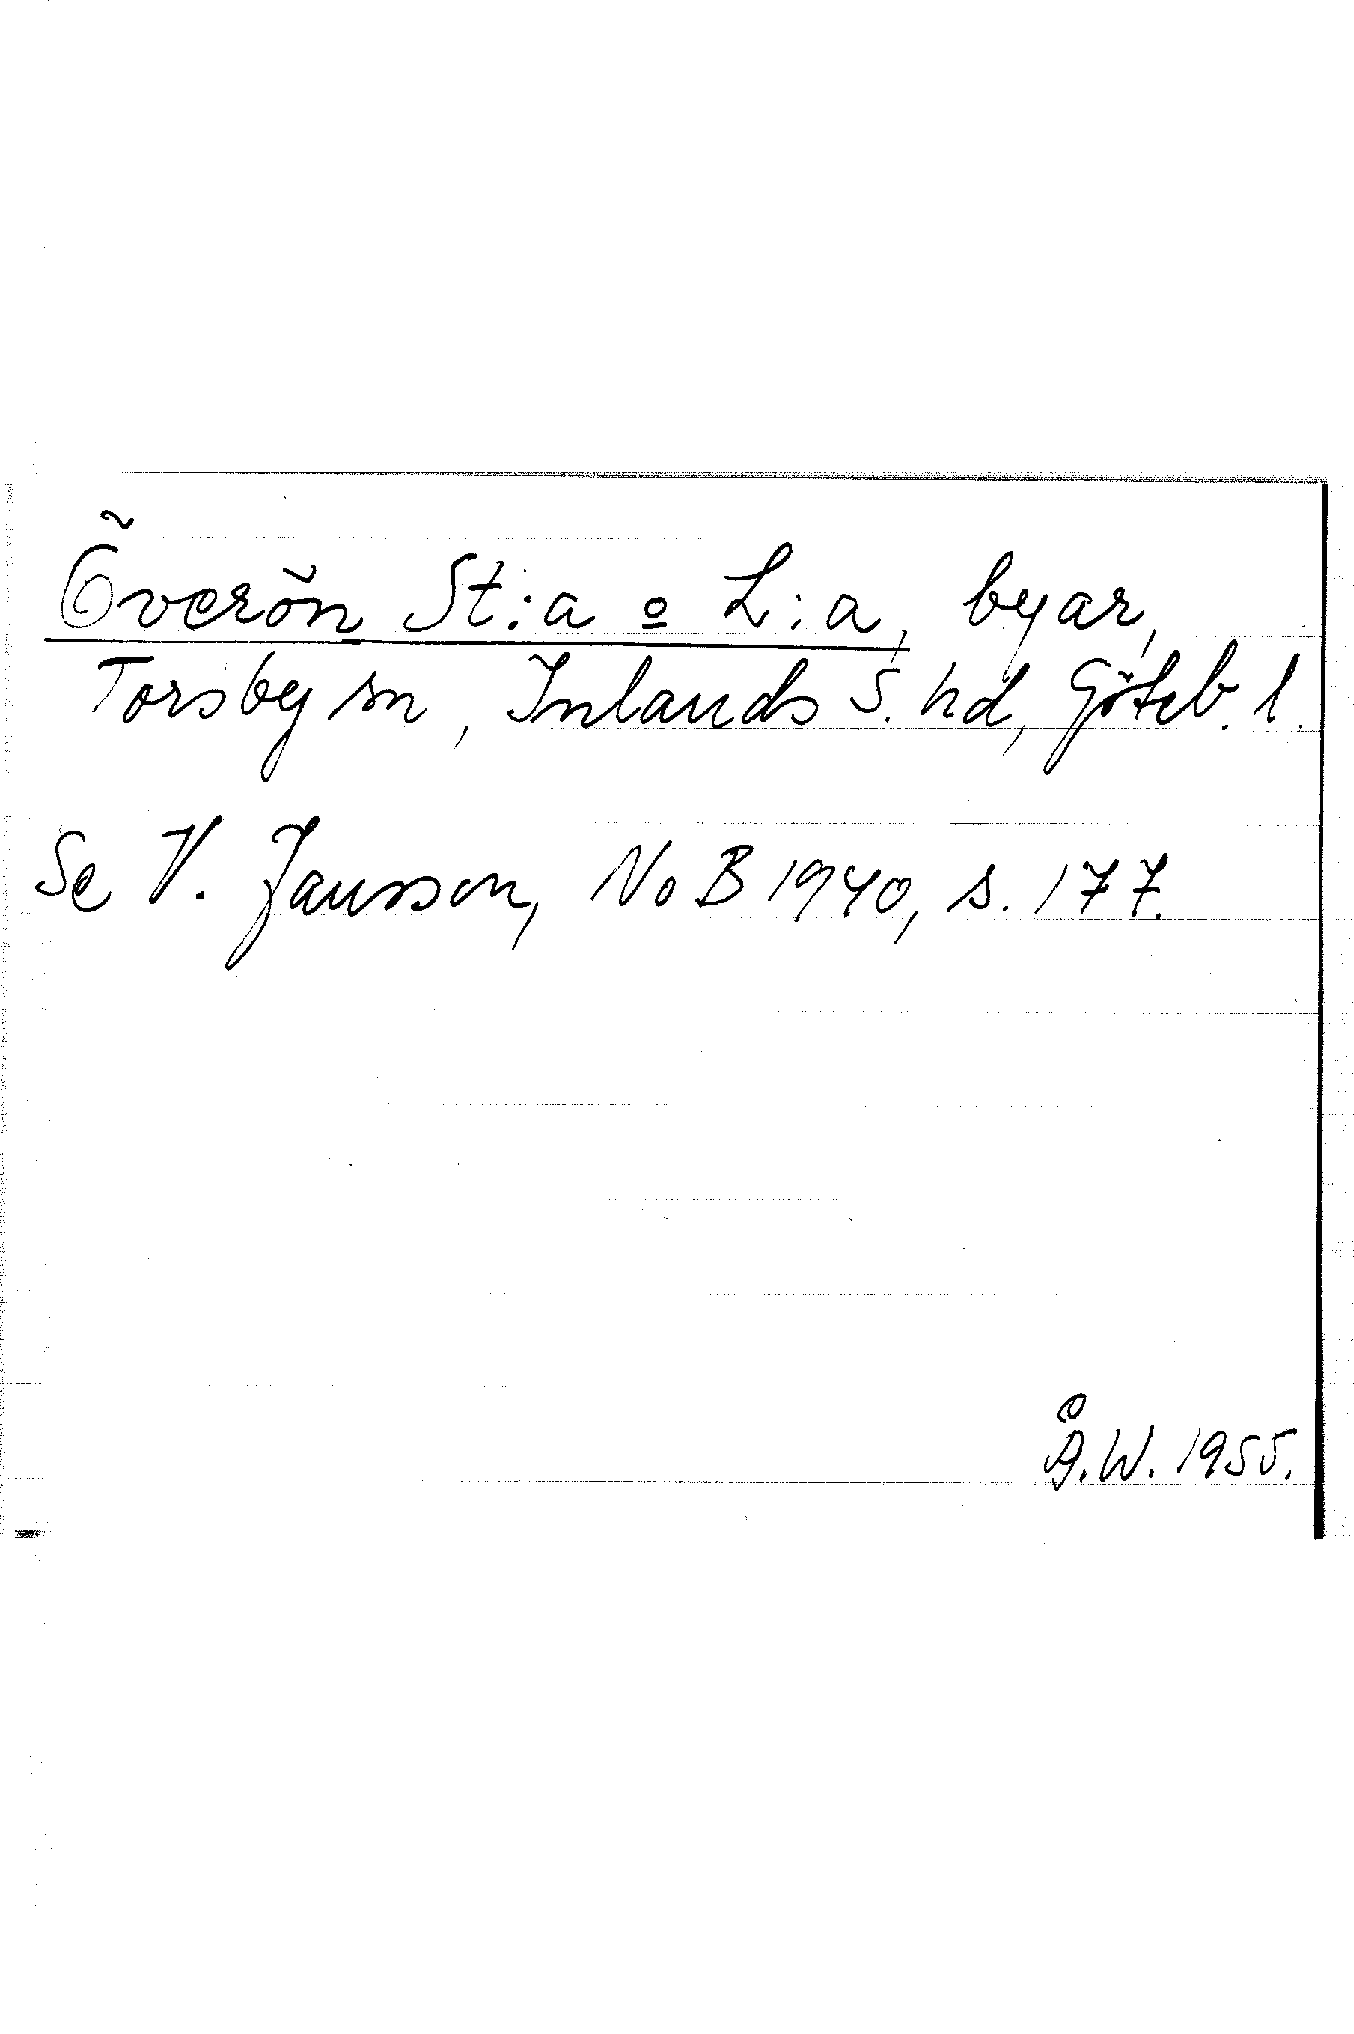 Överön St:a o L:a, byar,
Torsby sn, Inlands S. hd, Göteb. l.
Se V. Jansson, NoB 1940, s. 177.
Å.W. 1955.